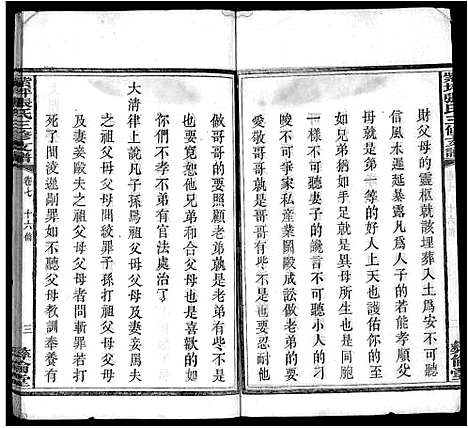 財父母的靈柩就該埋葬入土爲安不可聽
信風水遷延暴露凡爲人子的若能孝順父
母就是第一等的好人上天也護佑你的至
於弟兄猶如手足就是異母所生也是一
樣不可聽妻子的讒言不可聽小人的刁
唆不可爭家私產業鬭毆成訟做老弟的要
愛敬哥哥就是哥哥有些不是也要忍耐
做哥哥的要照顧老弟就是老弟有些不是
也要寬恕他兄弟和睦父母也是喜歡的如
你們不孝不弟有官法處治了
大清律上說凡子孫罵祖父母父母及妻妾罵夫
之祖父母父母間絞罪子孫打祖父母父母
及妻妾毆夫之祖父母父母者問斬罪若打
死了問凌遲剮罪如不聽父母教訓奉養有
紫坪張氏三修支譜
卷七
十六條
三
彝倫堂